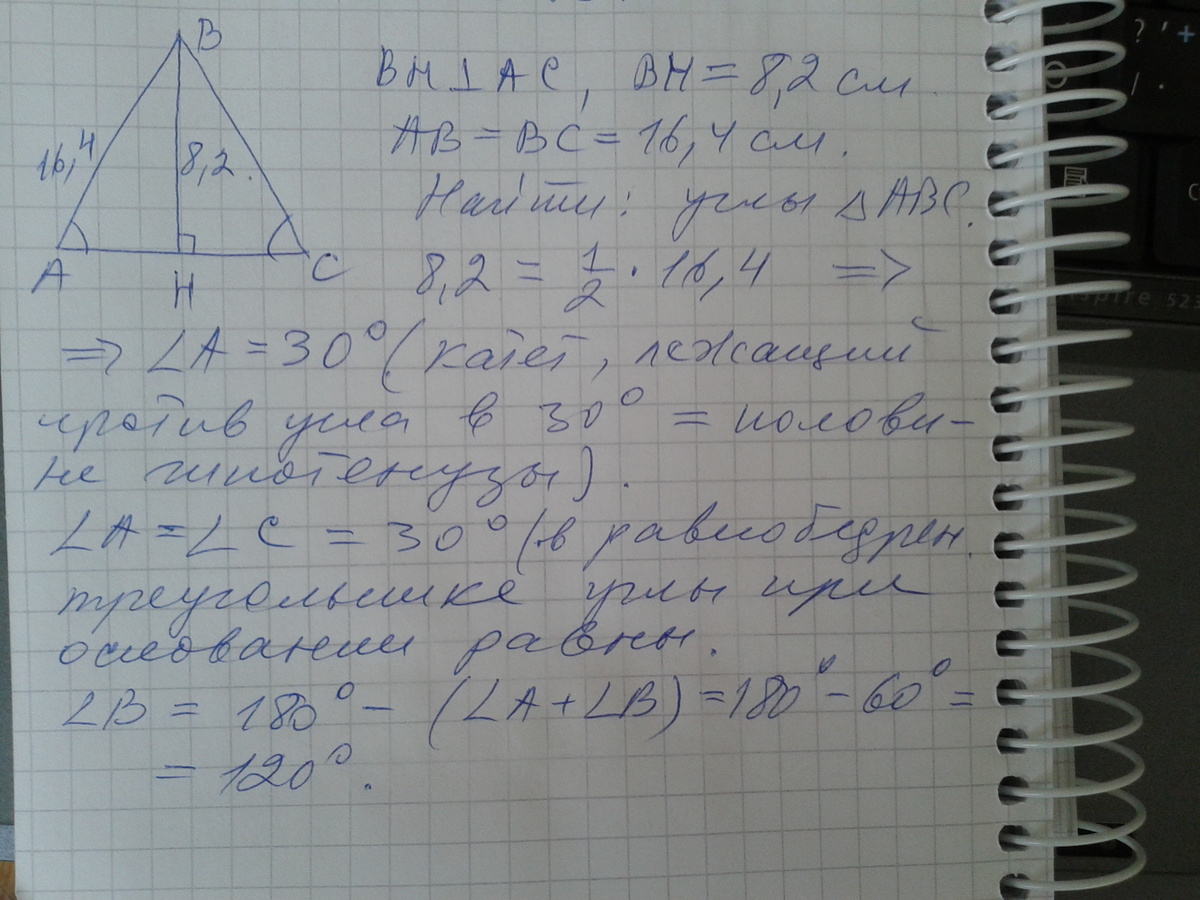 B
16,4
8,2.
A
H
C
BH⊥AC, BH = 8,2 см.
AB = BC = 16,4 см.
Найти: углы △ABC.
8,2 = 1/2 · 16,4 =>
=> ∠A = 30° (катет, лежащий
против угла в 30° = полови-
не гипотенузы).
∠A = ∠C = 30° (в равнобедрен.
треугольнике углы при
основании равны.
∠B = 180° – (∠A + ∠B) = 180° – 60° =
= 120°.